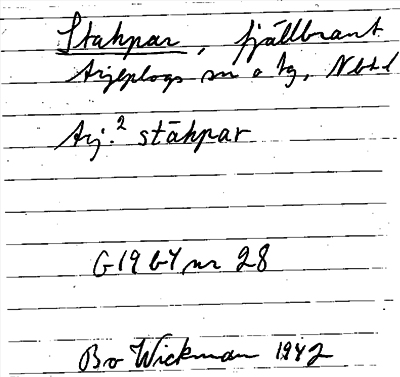 Stahpar, fjällbrant
Arjeplogs sn o tg, Nbtl
Arj.² stāhpar
G1964 nr 28
Bo Wickman 1942